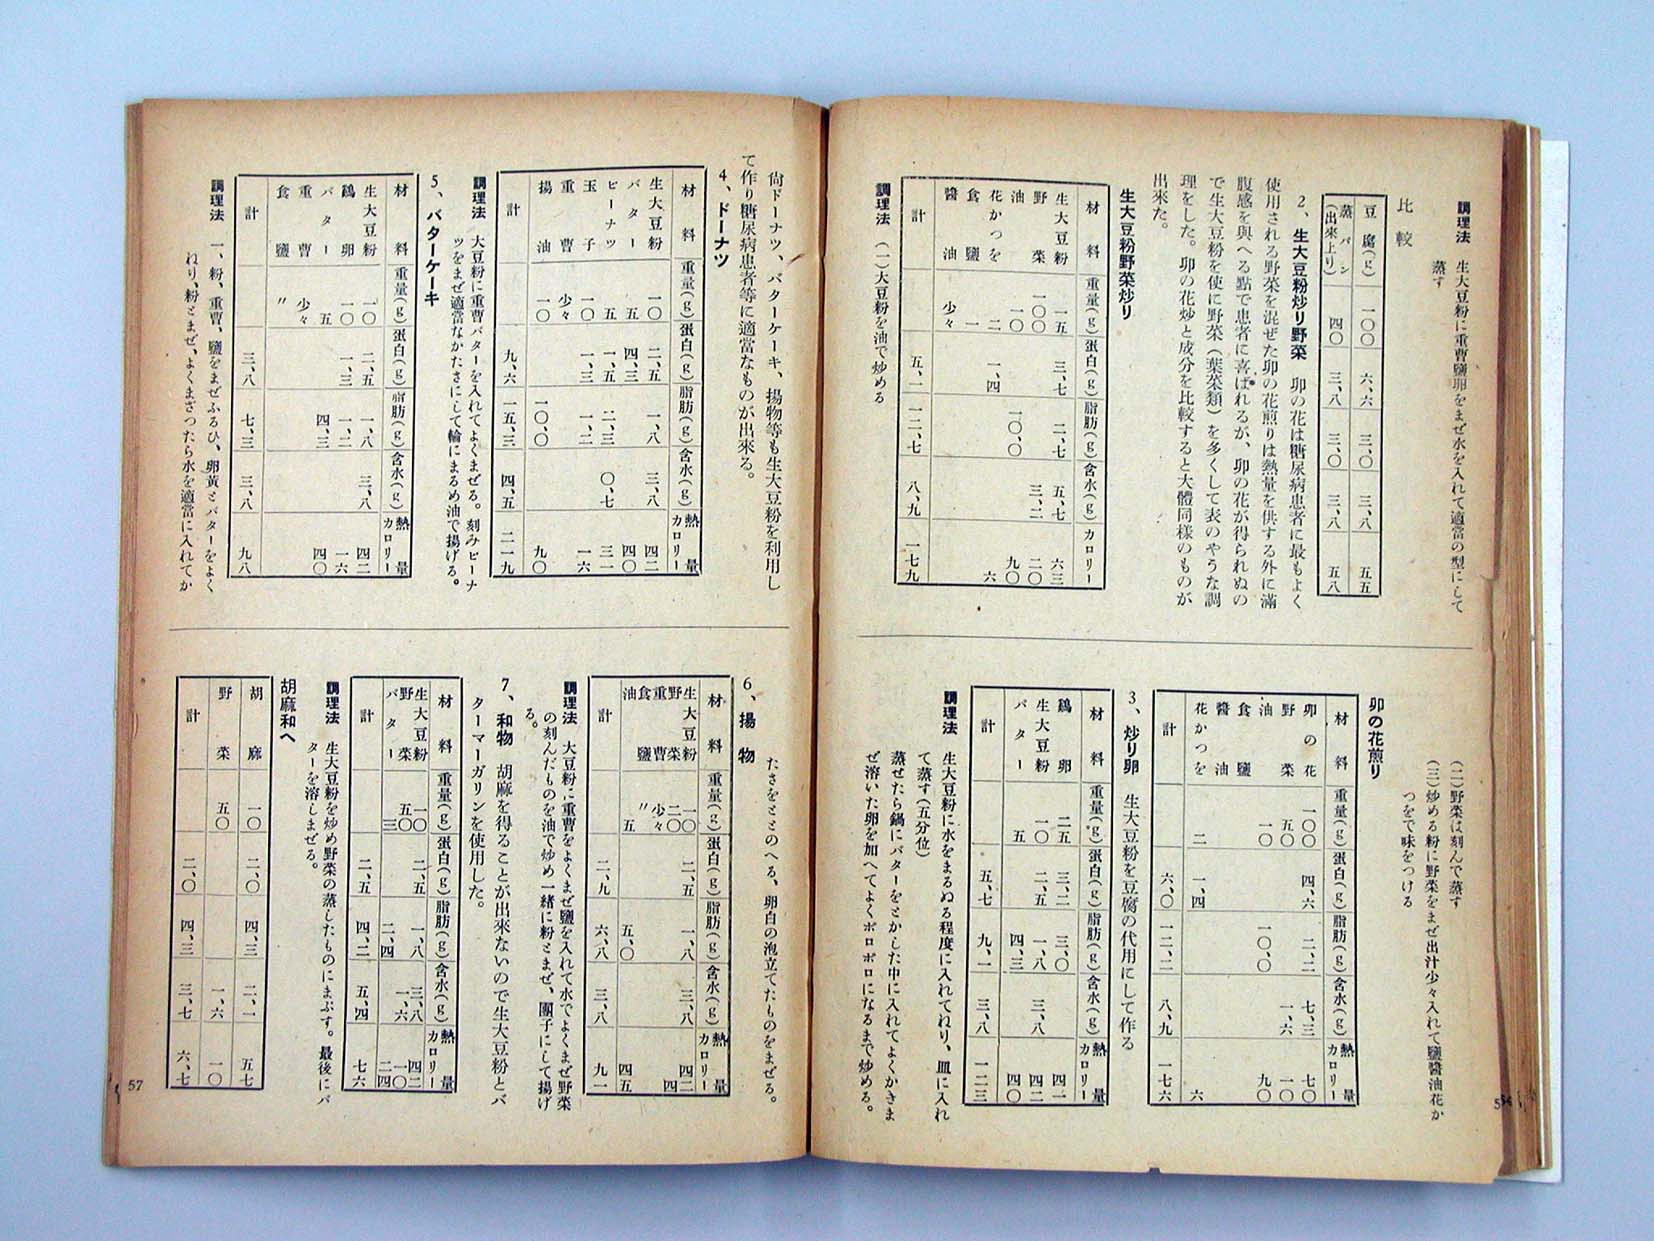 調理法 生大豆粉に重曹鹽卵をまぜ水を入れて適當の型にして
蒸す
比較
豆腐(g) 一〇〇 六、六 三、〇 三、八 五五
蒸パン(出來上り) 四〇 三、八 三、〇 三、八 五八
2、生大豆粉炒り野菜 卯の花は糖尿病患者に最もよく
使用される野菜を混ぜた卯の花煎りは熱量を供する外に滿
腹感を與へる點で患者に喜ばれるが、卯の花が得られぬの
で生大豆粉を使に野菜(葉菜類)を多くして表のやうな調
理をした。卯の花炒と成分を比較すると大體同樣のものが
出來た。
生大豆粉野菜炒り
材料 重量(g) 蛋白(g) 脂肪(g) 含水(g) カロリー
生大豆粉 一五 三、七 二、七 五、七 六三
野菜 一〇〇 三、二 二〇
油 一〇 一〇、〇 九〇
花かつを 二 一、四 六
食鹽 一
醬油 少々
計 五、一 一二、七 八、九 一七九
調理法 (一)大豆粉を油で炒める
(二)野菜は刻んで蒸す
(三)炒める粉に野菜をまぜ出汁少々入れて鹽醬油花か
つをで味をつける
卯の花煎り
材料 重量(g) 蛋白(g) 脂肪(g) 含水(g) 熱量カロリー
卯の花 一〇〇 四、六 二、二 七、三 七〇
野菜 五〇 一、六 一〇
油 一〇 一〇、〇 九〇
食鹽
醬油
花かつを 二 一、四 六
計 六、〇 一二、二 八、九 一七六
3、炒り卵 生大豆粉を豆腐の代用にして作る
材料 重量(g) 蛋白(g) 脂肪(g) 含水(g) 熱量カロリー
鷄卵 二五 三、二 三、〇 四一
生大豆粉 一〇 二、五 一、八 三、八 四二
バター 五 四、三 四〇
計 五、七 九、一 三、八 一二三
調理法 生大豆粉に水をまるぬる程度に入れてねり、皿に入れ
て蒸す(五分位)
蒸せたら鍋にバターをとかした中に入れてよくかきま
ぜ溶いた卵を加へてよくボロボロになるまで炒める。
尙ドーナツ、バターケーキ、揚物等も生大豆粉を利用し
て作り糖尿病患者等に適當なものが出來る。
4、ドーナツ
材料 重量(g) 蛋白(g) 脂肪(g) 含水(g) 熱量カロリー
生大豆粉 一〇 二、五 一、八 三、八 四二
バター 五 四、三 四〇
ピーナツ 五 一、五 二、三 〇、七 三一
玉子 一〇 一、三 一、二 一六
重曹 少々
揚油 一〇 一〇、〇 九〇
計 九、六 一五、三 四、五 二一九
調理法 大豆粉に重曹バターを入れてよくまぜる。刻みピーナ
ツをまぜ適當なかたさにして輪にまるめ油で揚げる。
5、バターケーキ
材料 重量(g) 蛋白(g) 脂肪(g) 含水(g) 熱量カロリー
生大豆粉 一〇 二、五 一、八 三、八 四二
鷄卵 一〇 一、三 一、二 一六
バター 五 四、三 四〇
重曹 少々
食鹽 〃
計 三、八 七、三 三、八 九八
調理法 一、粉、重曹、鹽をまぜふるひ、卵黃とバターをよく
ねり、粉とまぜ、よくまざつたら水を適當に入れてか
たさをととのへる、卵白の泡立てたものをまぜる。
6、揚物
材料 重量(g) 蛋白(g) 脂肪(g) 含水(g) 熱量カロリー
生大豆粉 一〇 二、五 一、八 三、八 四二
野菜 二〇 四
重曹 少々
食鹽 〃
油 五 五、〇 四五
計 二、九 六、八 三、八 九一
調理法 大豆粉に重曹をよくまぜ鹽を入れて水でよくまぜ野菜
の刻んだものを油で炒め一緖に粉とまぜ、團子にして揚げ
る。
7、和物 胡麻を得ることが出來ないので生大豆粉とバ
ターマーガリンを使用した。
材料 重量(g) 蛋白(g) 脂肪(g) 含水(g) 熱量カロリー
生大豆粉 一〇 二、五 一、八 三、八 四二
野菜 五〇 一、六 一〇
バター 三 二、四 二四
計 二、五 四、二 五、四 七六
調理法 生大豆粉を炒め野菜の蒸したものにまぶす。最後にバ
ターを溶しまぜる。
胡麻和へ
胡麻 一〇 二、〇 四、三 二、一 五七
野菜 五〇 一、六 一〇
計 二、〇 四、三 三、七 六、七
57